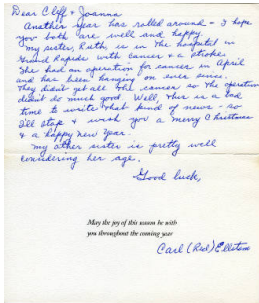 Dear Cliff & Joanna
Another year has rolled around - I hope
you both are well and happy.
my sister Ruth is in the hospital in
Grand Rapids with cancer & a stroke
She had an operation for cancer in April
and has been hanging on ever since.
They didn't get all the cancer so the operation
didn't do much good. Well, this is a bad
time to write that kind of news - so
I'll stop & wish you a merry Christmas
& a happy new year.
my other sister is pretty well
considering her age.
Good luck,
May the joy of this season be with
you throughout the coming year
Carl (Red) Ellstrom